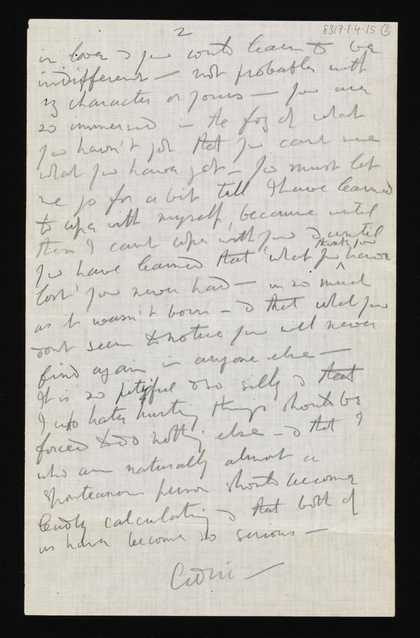 8817.1.4.15 3
2
in love & you would learn to be
indifferent — not probable with
my character or yours — You are
so immersed in the fog of what
you haven't got that you cant see
what you have got — You must let
me go for a bit till I have learned
to cope with myself, because until
then I cant cope with you & until
you have learned that 'what you think you have
lost' you never had — in so much
as it wasn't born — & that what you
dont seem to notice you will never
find again in anyone else —
It is so pitiful & so silly & that
I who hates hurting things should be
forced to do nothing else — & that I
who am naturally almost a
spontaneous person should become
calculating & that both of
us have become so serious —